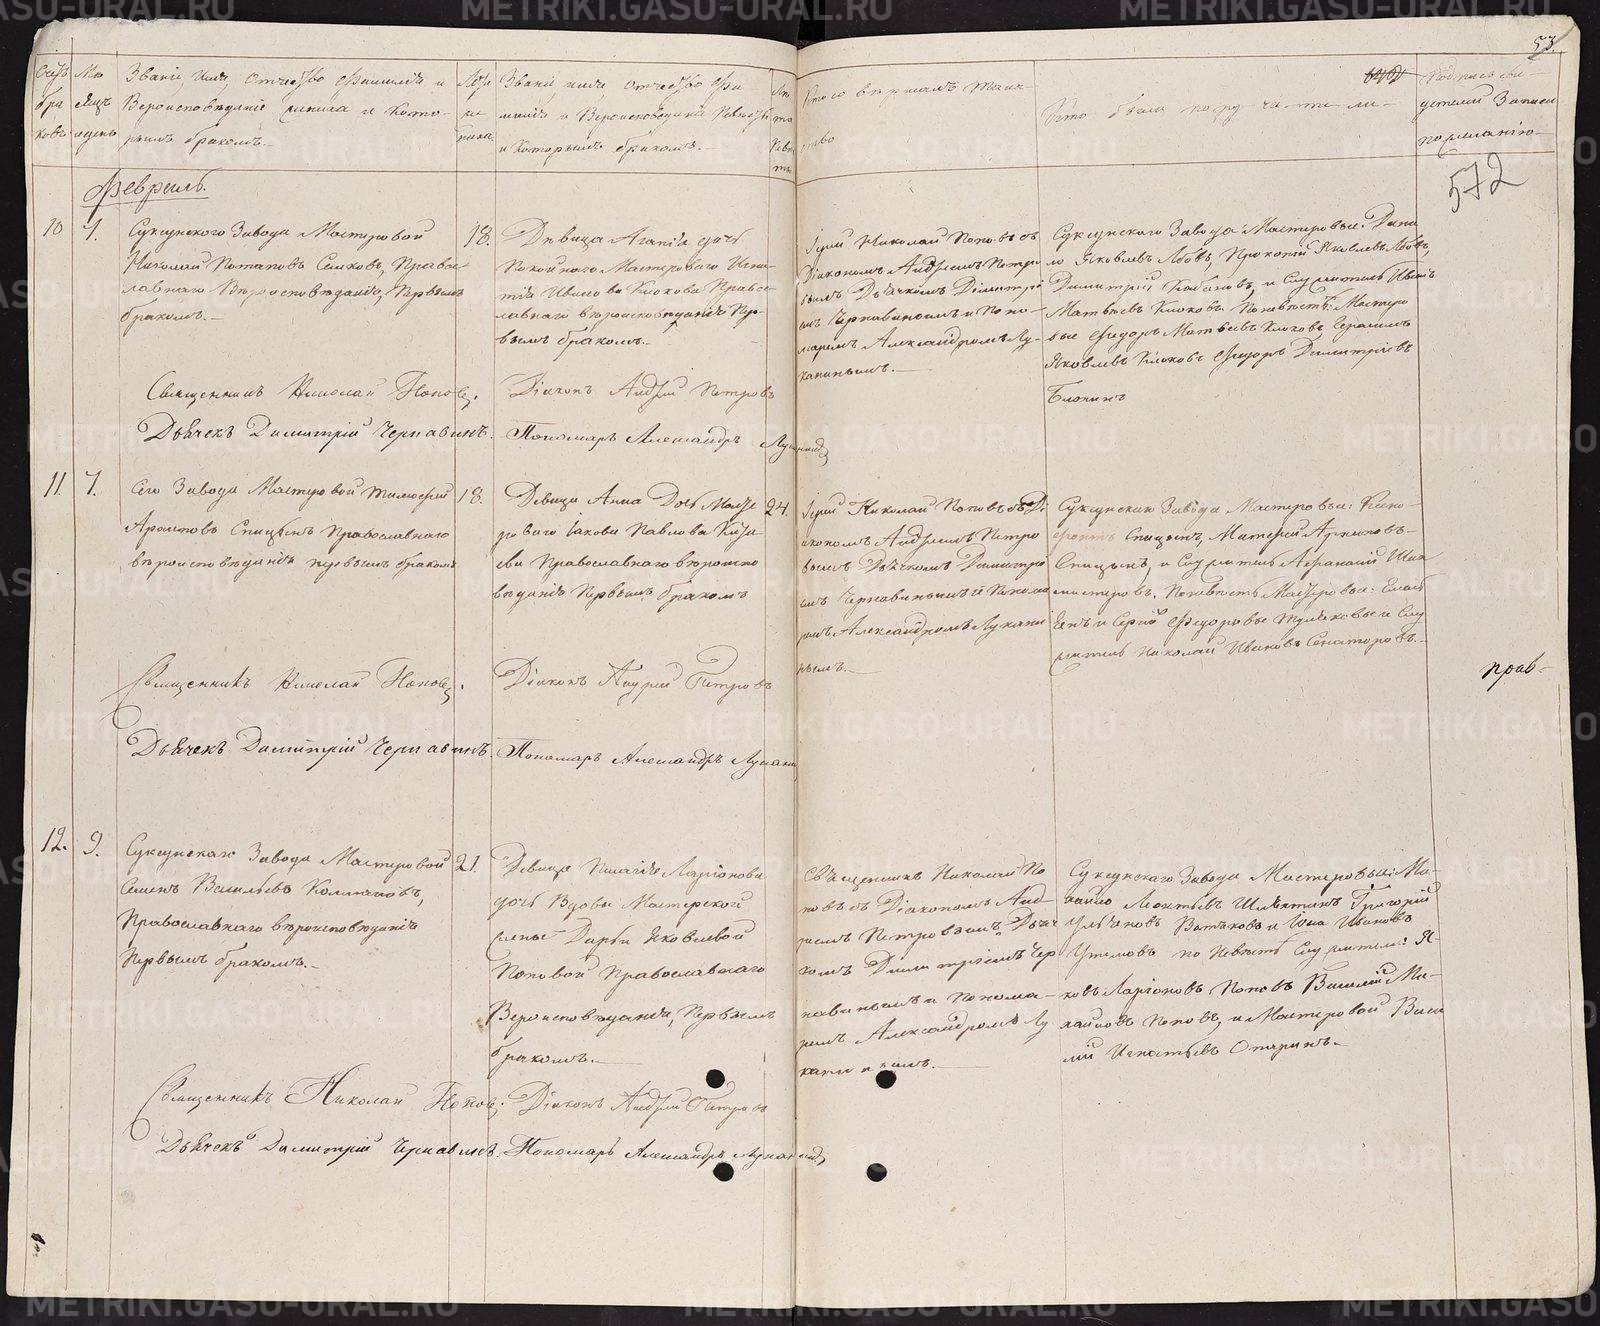 53
572
Счетъ браковъ
Мѣсяцъ и день
Званіе, имя, отчество, фамилія и
Вѣроисповѣданіе жениха и кото-
рымъ бракомъ.
Лѣта жениха
Званіе, имя, отчество, фа
милія и Вѣроисповѣданіе Невѣсты
и которымъ бракомъ.
Лѣта Невѣсты
Кто совершалъ таин-
ство
Кто были поручители
Подпись сви-
дѣтелей Записи
по желанію
Февраль.
10
7.
Суксунскаго Завода Мастеровой
Николай Потаповъ Сешковъ, Право
славнаго Вѣроисповѣданія, Первымъ
бракомъ.
18.
Дѣвица Агапія дочь
Покойнаго Мастероваго Игна-
тія Иванова Клюкова Право-
славнаго вѣроисповѣданія Пер-
вымъ бракомъ.
Іерей Николай Поповъ съ
Діакономъ Андреемъ Петро
вымъ Дьячкомъ Димитрі
емъ Чернавинымъ и Поно-
маремъ Александромъ Лу-
канинымъ.
Суксунскаго Завода Мастеровые: Дани
ло Яковлевъ
Димитрій и Служитель Иванъ
Матвѣевъ Клюковъ. По невѣстѣ: Мастеро
вые Федоръ Матвѣевъ Клюковъ, Герасимъ
Яковлевъ Клюковъ Федоръ Димитріевъ
Блохинъ
Священникъ Николай Поповъ.
Діаконъ Андрей Петровъ
Дьячекъ Димитрій Чернавинъ.
Пономарь Александръ Луканинъ
11.
7.
Сего Завода Мастеровой Тимофей
Спицынъ Православнаго
вѣроисповѣданія первымъ бракомъ
18.
Дѣвица Анна Дочь Масте
роваго Іакова Павлова
Православнаго вѣроиспо
вѣданія Первымъ бракомъ
24.
Іерей Николай Поповъ съ Ді
акономъ Андреемъ Петро
вымъ Дьячкомъ Димитрі
емъ Чернавинымъ и Понома
ремъ Александромъ Лукани
нымъ.
Суксунскаго Завода Мастеровые:
Спицынъ,
Спицынъ, и Служитель Афанасій
По невѣстѣ Мастеровые:
и Сергѣй Федоровы и Слу
житель Николай Ивановъ Сенаторовъ.
Прав-
Священникъ Николай Поповъ.
Діаконъ Андрей Петровъ
Дьячекъ Димитрій Чернавинъ.
Пономарь Александръ Луканинъ
12.
9.
Суксунскаго Завода Мастеровой
Семенъ Васильевъ Колпаковъ,
Православнаго вѣроисповѣданія
Первымъ бракомъ.
21.
Дѣвица Пелагія Ларіонова
дочь Вдовы Мастерской
жены Дарьи Яковлевой
Поповой Православнаго
Вѣроисповѣданія, Первымъ
бракомъ.
Священникъ Николай По
повъ съ Діакономъ Анд-
реемъ Петровымъ, Дьяч
комъ Димитріемъ Чер
навинымъ и Понома-
ремъ Александромъ Лу
канинымъ.
Суксунскаго Завода Мастеровые: Ми-
хайло Леонтьевъ Григорій
Ивановъ
по Невѣстѣ Служители: Я-
ковъ Ларіоновъ Поповъ Василій Ми-
хайловъ Поповъ, и Мастеровой Васи
лій Игнатьевъ
Священникъ Николай Поповъ.
Діаконъ Андрей Петровъ
Дьячекъ Димитрій Чернавинъ.
Пономарь Александръ Луканинъ
METRIKI.GASO-URAL.RU